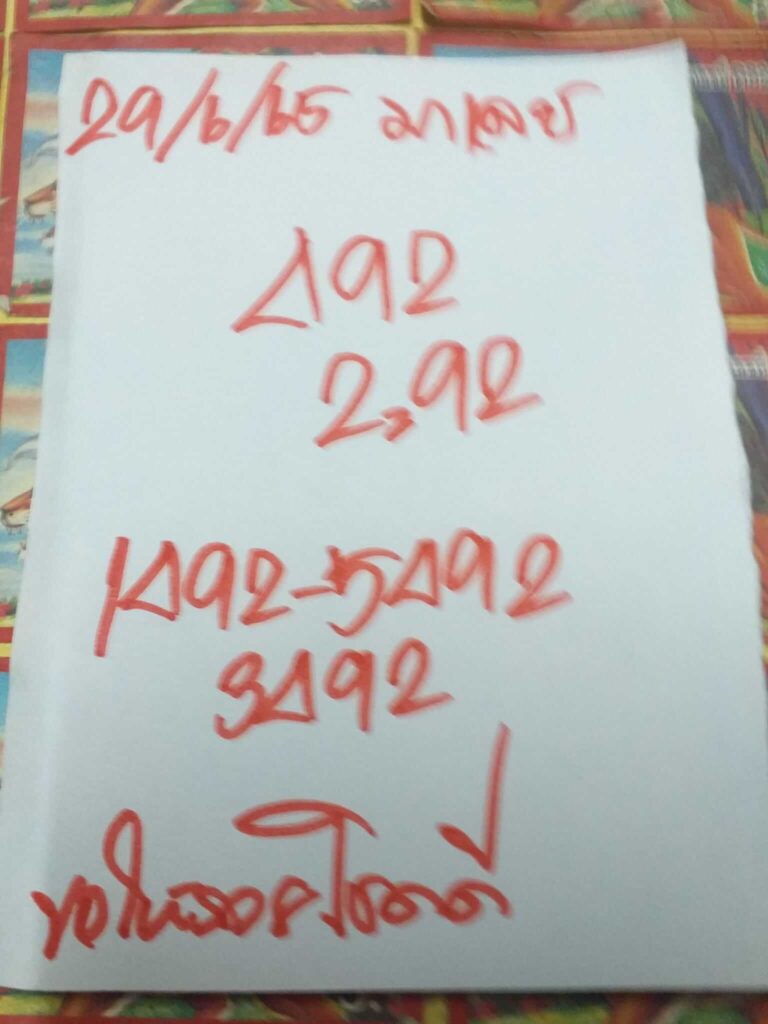 29/6/65 มาเลย์
192
2,92
1192-5192
3192
ขอให้รวยโชคดี